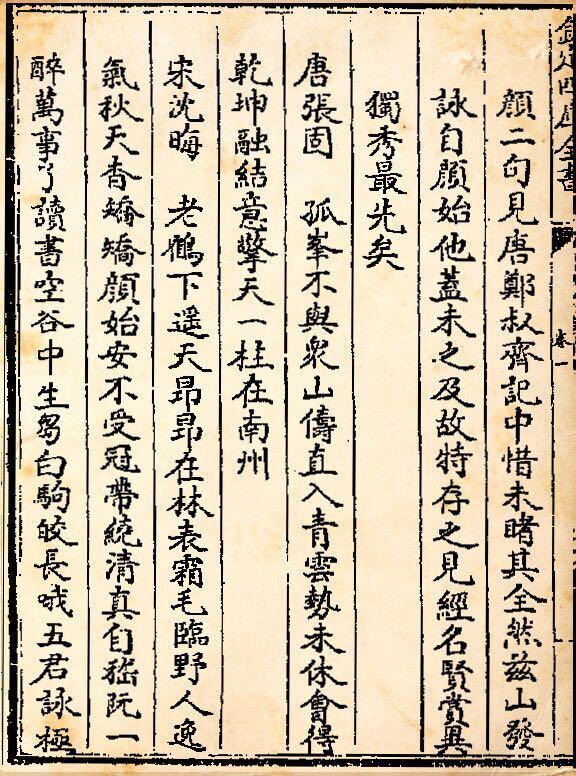 欽定四庫全書
卷一
顔二句見唐鄭叔齊記中惜未睹其全然兹山發
詠自顔始他蓋未之及故特存之見經名賢賞異
獨秀最先矣
唐張固　孤峯不與衆山儔直入青雲勢未休會得
乾坤融結意擎天一柱在南州
宋沈晦　老鶴下遥天昻昻在林表霜毛臨野人逸
氣秋天杳矯矯顔始安不受冠帶繞清真自嵇阮一
醉萬事了讀書空谷中生芻白駒皎長哦五君詠極